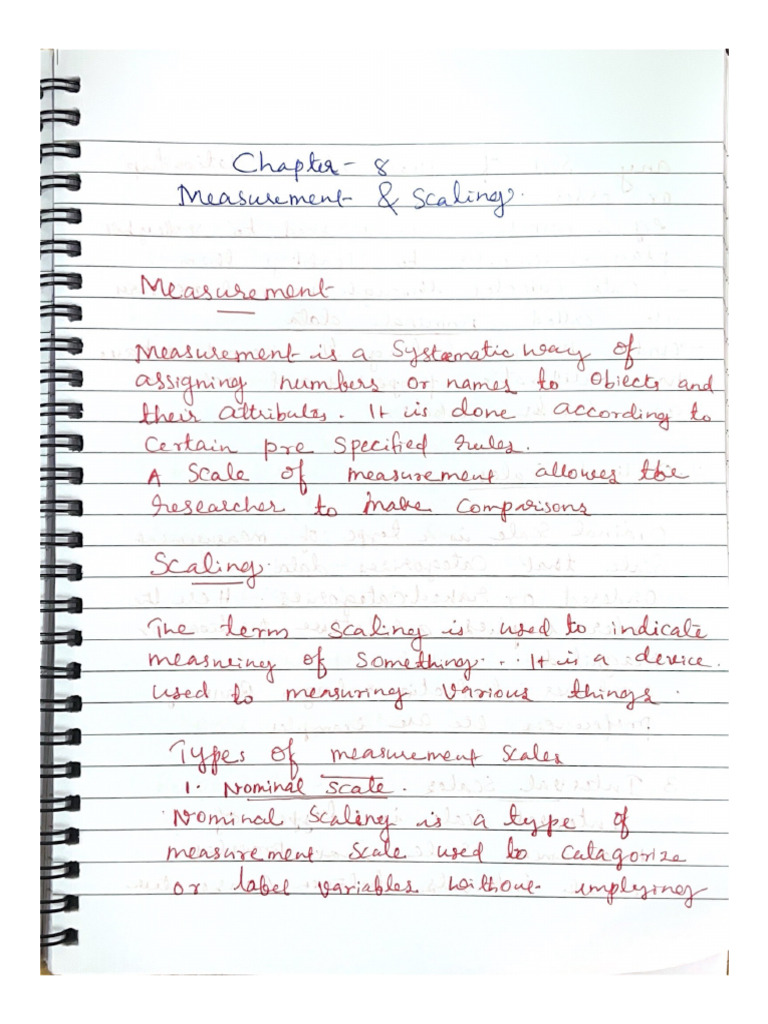 Chapter - 8
Measurement & Scaling.
Measurement
Measurement is a Systematic way of
assigning numbers or names to Objects and
their attributes. It is done according to
Certain pre Specified rules.
A Scale of measurement allowes the
researcher to make Comparisons
Scaling.
The term Scaling is used to indicate
measuring of Something. It is a device.
used to measuring Various things.
Types of measurement Scales
1. Nominal Scale.
Nominal Scaling is a type of
measurement Scale used to Catagorize
or label variables without implying